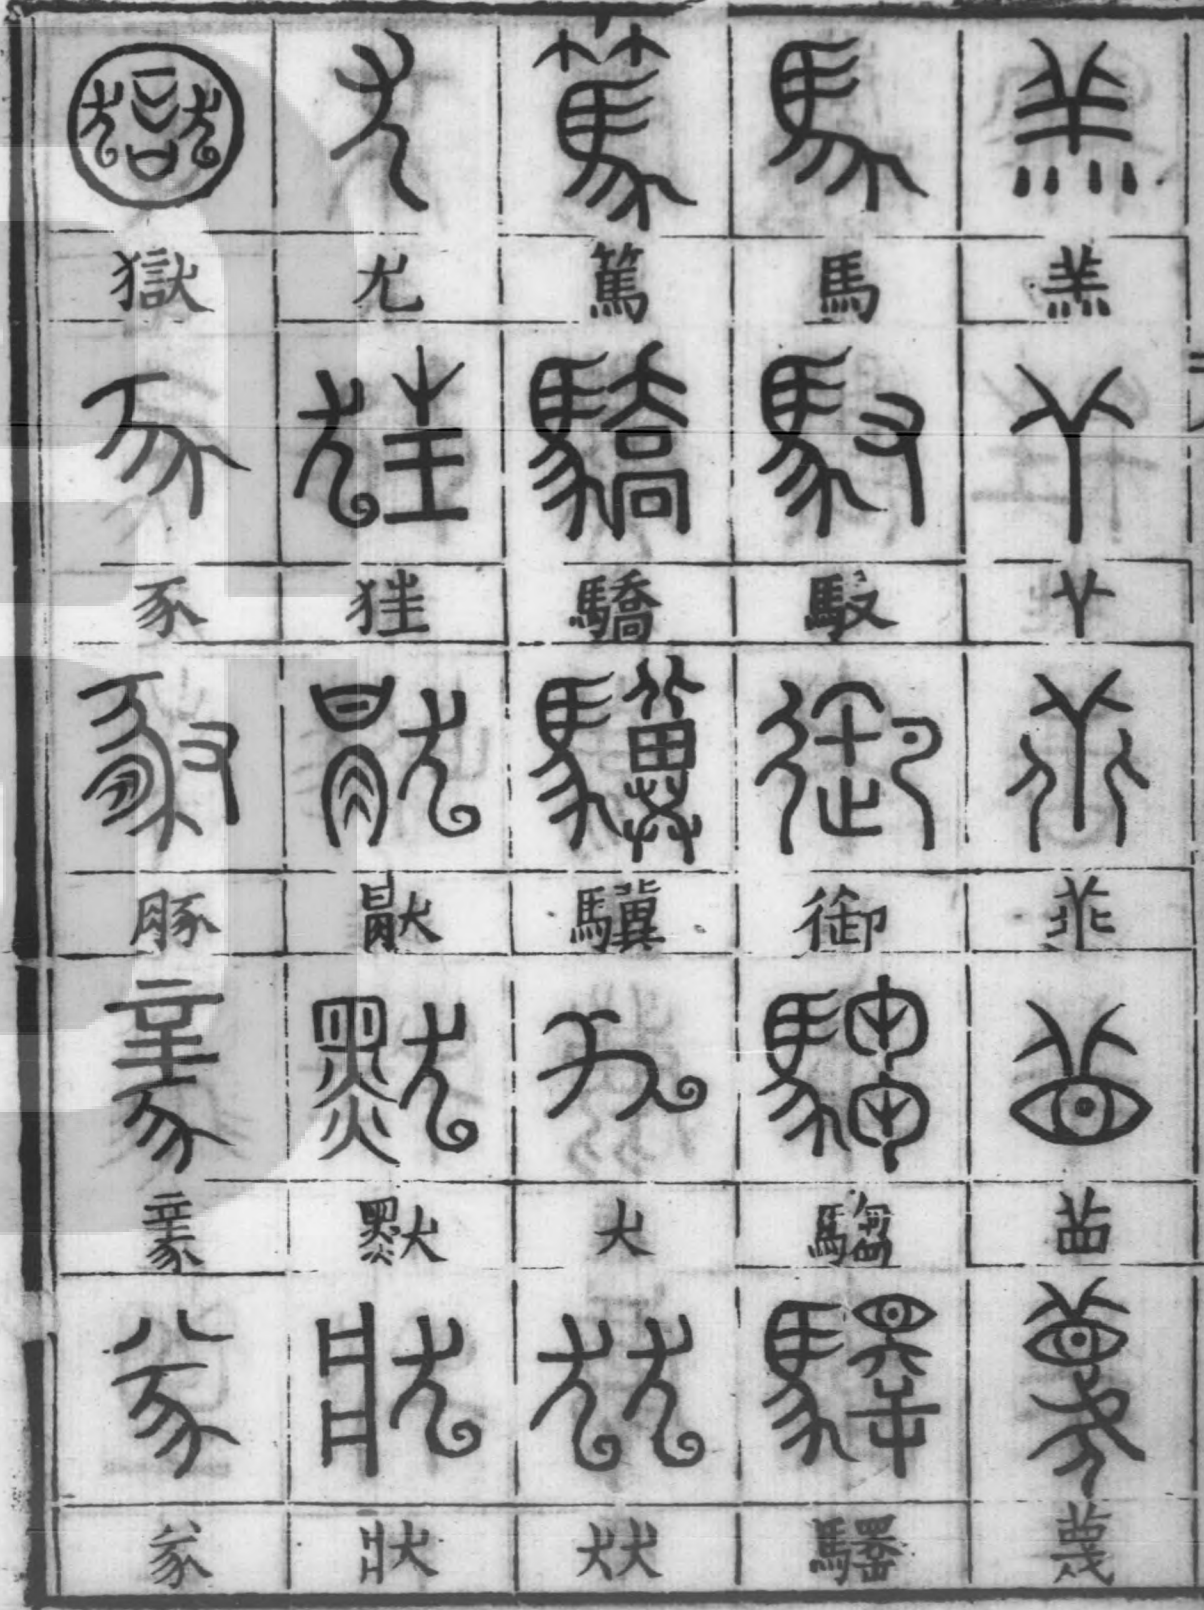 羔
丫
苜
蔑
馬
馭
御
騶
驛
篤
驕
驥
犬
㹜
尤
猒
默
狀
獄
豕
豚
豙
㒸